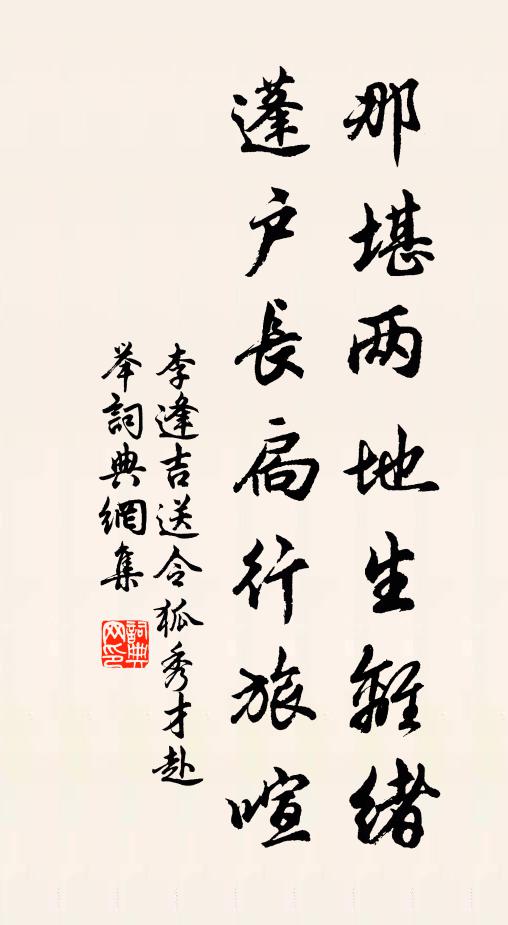 那堪两地生離緒
蓬户長扃行旅喧
李逢吉送令狐秀才赴
举詞典網集
詞典
网印